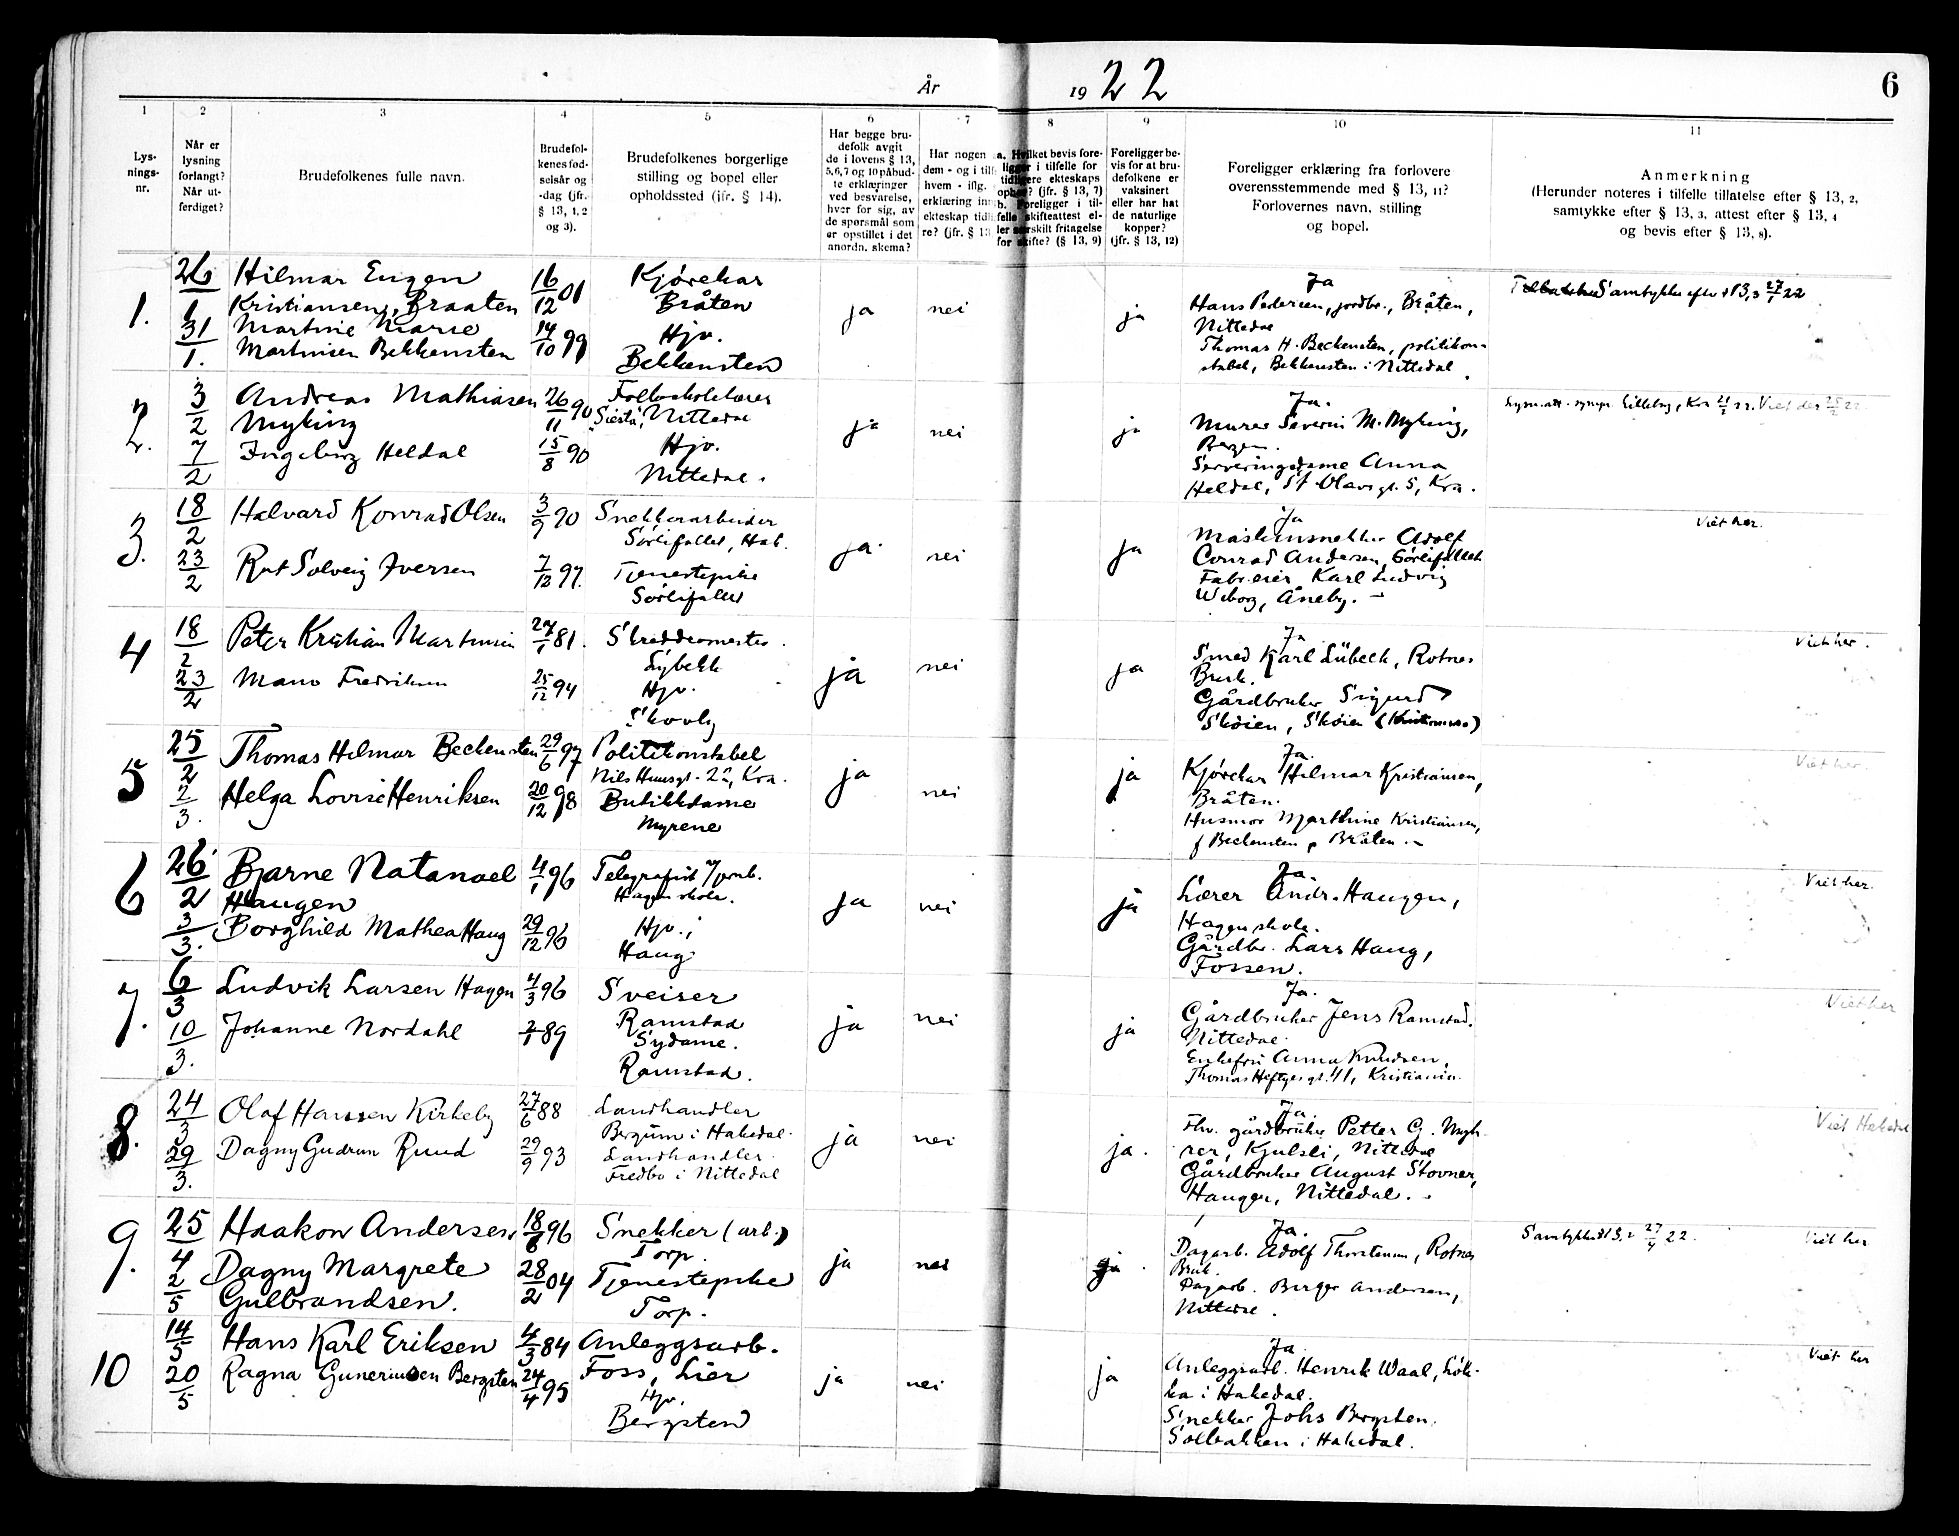 År 1922
6
1
2
3
4
5
6
7
8
9
10
11
Lys-
nings-
nr.
Når er
lysning
forlangt?
Når ut-
ferdiget?
Brudefolkenes fulle navn.
Brudefol-
kenes fød-
selsår og
-dag (jfr.
§ 13, 1, 2
og 3).
Brudefolkenes borgerlige
stilling og bopel eller
opholdssted (jfr. § 14).
Har begge bru-
defolk avgit
de i lovens § 13,
5, 6, 7 og 10 påbud-
te erklæringer
ved besvarelse,
hver for sig, av
de spørsmål som
er opstillet i det
anordn. skema?
Har nogen
dem - og i tilf
hvem - iflg.
erklæring inn
ekteskap tidl
re? (jfr. § 13
a. Hvilket bevis fore-
ligger i tilfelle for
tidligere ekteskaps
ophør? (jfr. § 13, 7)
b. Foreligger i til-
felle skifteattest el-
ler særskilt fritagelse
for skifte? (§ 13, 9)
Foreligger be-
vis for at bru-
defolkene er
vaksinert
eller har hat
de naturlige
kopper?
(jfr. § 13, 12)
Foreligger erklæring fra forlovere
overensstemmende med § 13, 11?
Forlovernes navn, stilling
og bopel.
Anmerkning
(Herunder noteres i tilfelle tillatelse efter § 13, 2,
samtykke efter § 13, 3, attest efter § 13, 4
og bevis efter § 13, 8).
1.
26/1
31/1.
Hilmar Eugen
Kristiansen, Braaten
Martine Marie
Martinsen Bekkensten
16/12 01
14/10 99
Kjørekar
Bråten
Hjv.
Bekkensten
ja
nei
ja
Ja
Hans Pedersen, jordbr., Bråten,
Nittedal
Thomas H. Beckensten, politikon-
stabel, Bekkensten i Nittedal.
Samtykke efter § 13,3 27/1 22
2.
3/2
7/2
Andreas Mathiasen
Myking
Ingeborg Heldal
26/11 90
15/8 90
Folkeskolelærer
Siestu, Nittedal
Hjv.
Nittedal.
ja
nei
ja
Ja.
Murer Severin M. Myking,
Bergen.
Serveringsdame Anna
Heldal, St Olavsgt. 5, Kra.
Viet der 25/2 22.
3.
18/2
23/2
Halvard Konrad Olsen
Rut Solveig Iversen
3/9 90
7/12 97.
Snekkerarbeider
Sørlifallet, Hak.
Tjenestepike
Sørlifallet
ja
nei
ja
Ja
Maskinsnekker Adolf
Conrad Andersen, Sørlifallet
Fabr.eier Karl Ludvig
Wiborg, Åneby. -
Viet her.
4
18/2
23/2
Peter Kristian Martinsen
Fredriksen
27/1 81.
25/12 94
Skreddermester
Lybekk
Hjv.
Skovly
ja
nei
ja
Ja
Smed Karl Lübeck, Rotnes
Bruk.
Gårdbruker Sigurd
Skøien, Skøien (Kristiania)
Viet her.
5
25/2
2/3.
Thomas Hilmar Beckensten
Helga Lovise Henriksen
29/6 97
20/12 98
Politikonstabel
Nils Huusgt. 2a, Kra.
Butikkdame
Myrene
ja
nei
ja
Ja.
Kjørekar Hilmar Kristiansen,
Bråten.
Husmor Marthine Kristiansen,
f Beckensten, Bråten.-
Viet her.
6
26/2
3/3.
Bjarne Natanael
Haugen
Borghild Mathea Haug
4/1 96
29/12 96
Telegrafist
Hagen skole.
Hjv.
Haug
ja
nei
ja
Ja
Lærer Andr. Haugen,
Hagen skole.
Gårdbr. Lars Haug,
Fossen.
Viet her.
7.
6/3
10/3.
Ludvik Larsen Hagen
Johanne Nordahl
4/3 96
89
Sveiser
Ramstad
Sydame.
Ramstad.
ja
nei
ja
Ja.
Gårdbruker Jens Ramstad.
Nittedal
Enkefru Anna Knudsen,
Thomas Heftyes gt. 41, Kristiania.
Viet her
8.
24/3
29/3.
Olaf Hanssen Kirkeby
Dagny Gudrun Ruud
27/6 88
29/9 93
Landhandler
Bergum i Hakedal.
Landhandler
Fredbo i Nittedal
ja
nei
ja.
Ja
Fhv. gårdbruker Petter G. Myh-
rer, Kjulsli, Nittedal
Gårdbruker August Stovner,
Haugen, Nittedal. -
Viet Hakedal
9.
25/4
2/5
Haakon Andersen
Dagny Margrete
Gulbrandsen.
18/6 96
28/2 04
Snekker (arb.)
Torp.
Tjenestepike
Torp.
ja
nei
ja
Ja.
Dagarb. Adolf Thorstensen, Rotnes
Bruk.
Dagarb. Birger Andersen,
Nittedal.
Samtykke § 13,2 27/4 22.
Viet her
10
14/5
20/5
Hans Karl Eriksen
Ragna Guneriusen Bergsten
4/3 84
24/4 95
Anleggsarb.
Foss, Lier
Hjv.
Bergsten
ja
nei
ja
Ja.
Anleggsarb. Henrik Waal, Løk-
ka i Hakedal.
Snekker Johs Bergsten.
Solbakken i Hakedal.
Viet her